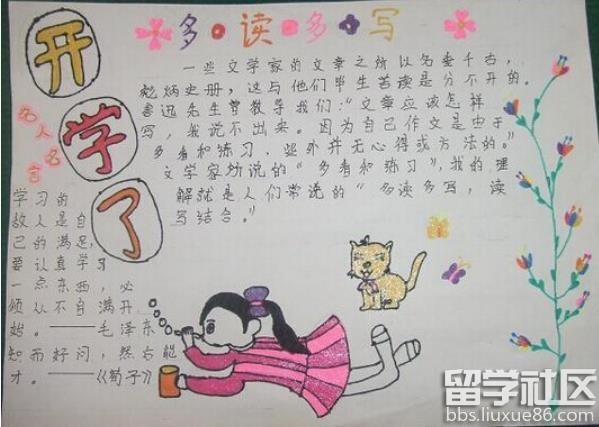 开学了
多·读·多·写
名人名言
一些文学家的文章之所以名垂千古,
彪炳史册,这与他们毕生苦读是分不开的。
鲁迅先生曾教导我们:“文章应该怎样
写,我说不出来。因为自己作文是由于
多看和练习,此外并无心得或方法的。”
文学家所说的“多看和练习”,我的理
解就是人们常说的“多读多写,读
写结合。”
学习的
敌人是自
己的满足,
要认真学习
一点东西,必
须从不自满开
始。——毛泽东
知而好问,然后能
才。——《荀子》
留学社区
bbs.liuxue86.com